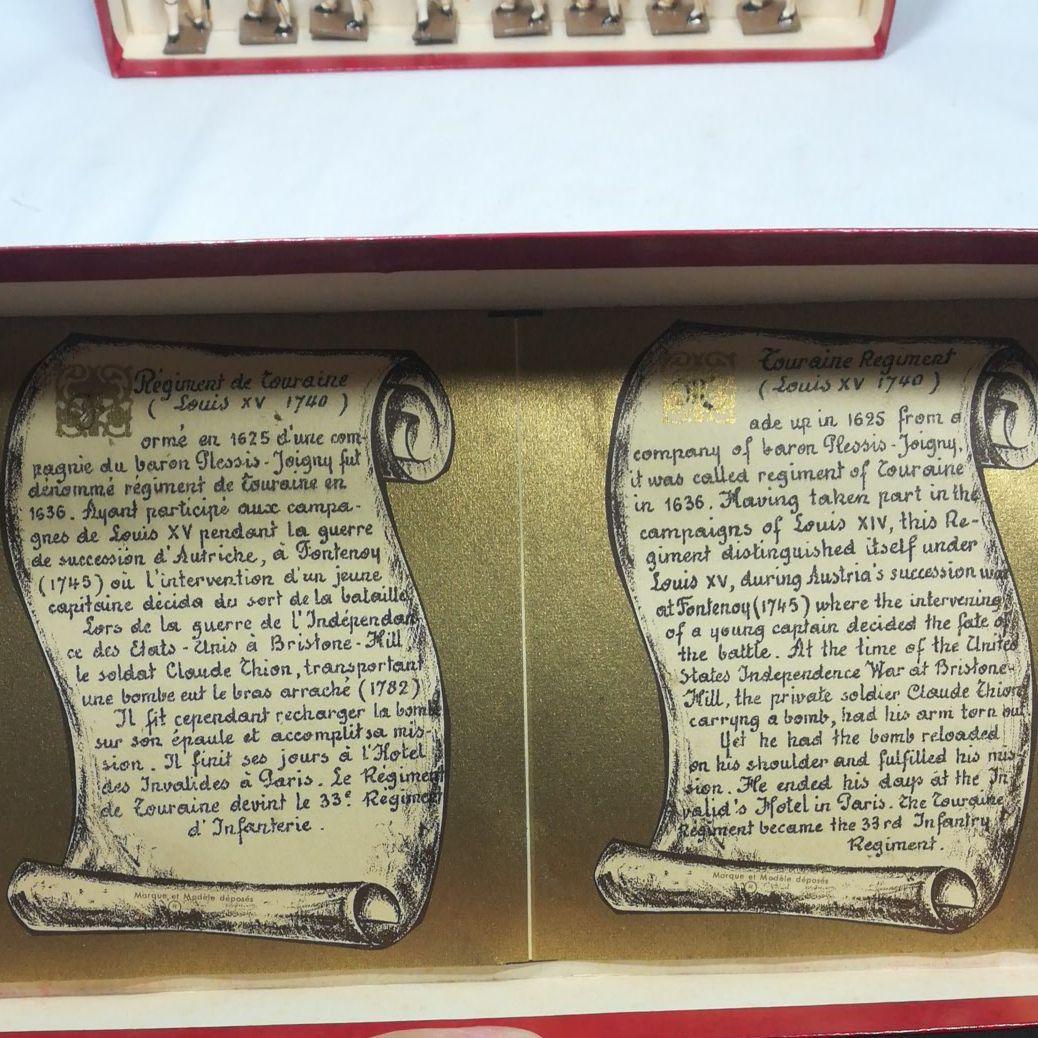 Régiment de Touraine
( Louis XV 1740 )
ormé en 1625 d'une com-
pagnie du baron Plessis-Joigny fut
dénommé régiment de Touraine en
1636. Ayant participé aux campa-
gnes de Louis XV pendant la guerre
de succession d'Autriche, à Fontenoy
(1745) où l'intervention d'un jeune
capitaine décida du sort de la bataille
Lors de la guerre de l'Indépendan
ce des Etats-Unis à Bristone-Hill
le soldat Claude Thion, transportant
une bombe eut le bras arraché (1782)
Il fit cependant recharger la bombe
sur son épaule et accomplit sa mis-
sion. Il finit ses jours à l'Hotel
des Invalides à Paris. Le Régiment
de Touraine devint le 33e Régiment
d'Infanterie.
Marque et Modèle déposés
Touraine Regiment
( Louis XV 1740 )
M
ade up in 1625 from a
company of baron Plessis-Joigny,
it was called regiment of Touraine
in 1636. Having taken part in the
campaigns of Louis XIV, this Re-
giment distinguished itself under
Louis XV, during Austria's succession war
at Fontenoy (1745) where the intervening
of a young captain decided the fate of
the battle. At the time of the United
States Independence War at Bristone-
Hill, the private soldier Claude Thion
carryng a bomb, had his arm torn out
Yet he had the bomb reloaded
on his shoulder and fulfilled his mis-
sion. He ended his days at the In
valid's Hotel in Paris. The Touraine
Regiment became the 33rd Infantry
Regiment.
Marque et Modèle déposés